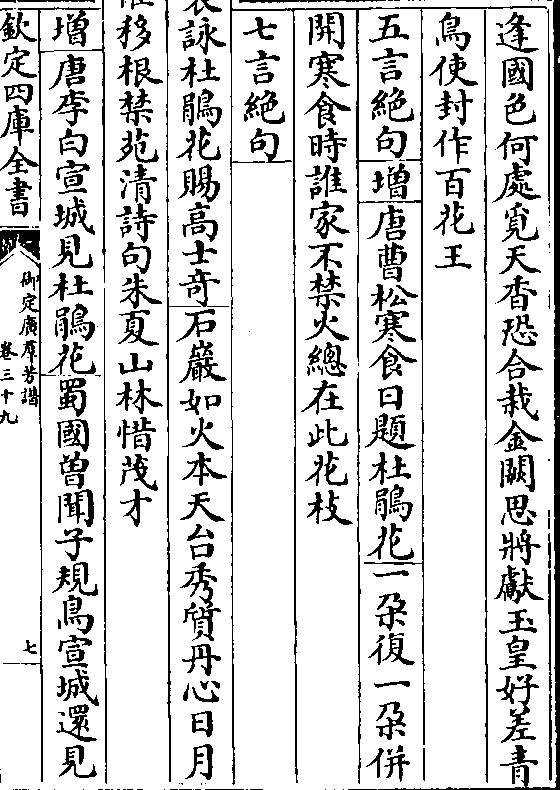 逢國色何處覓天香恐合栽金闕思將獻玉皇好差青
鳥使封作百花王
五言絶句增唐曹松寒食日題杜鵑花一朶復一朶併
開寒食時誰家不禁火總在此花枝
七言絶句
詠杜鵑花賜高士奇石巖如火本天台秀質丹心日月
移根禁苑清詩句朱夏山林惜茂才
增唐李白宣城見杜鵑花蜀國曾聞子規鳥宣城還見
欽定四庫全書
御定廣羣芳譜
卷三十九
七